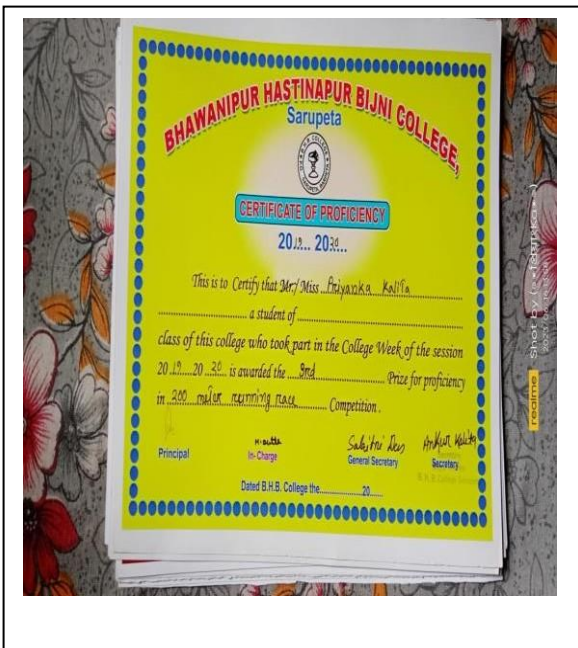 BHAWANIPUR HASTINAPUR BIJNI COLLEGE,
Sarupeta
CERTIFICATE OF PROFICIENCY
2019... 2020...
This is to Certify that Mr./ Miss ...Priyanka Kalita
a student of
class of this college who took part in the College Week of the session
2019 2020 is awarded the 3rd Prize for proficiency
in 200 meter running race Competition.
Principal In- Charge General Secretary Secretary
Dated B.H.B. College the 20
realme Shot by